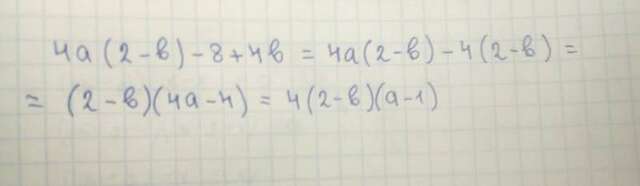 4a(2-в)-8+4в = 4a(2-в)-4(2-в) =
= (2-в)(4a-4) = 4(2-в)(a-1)